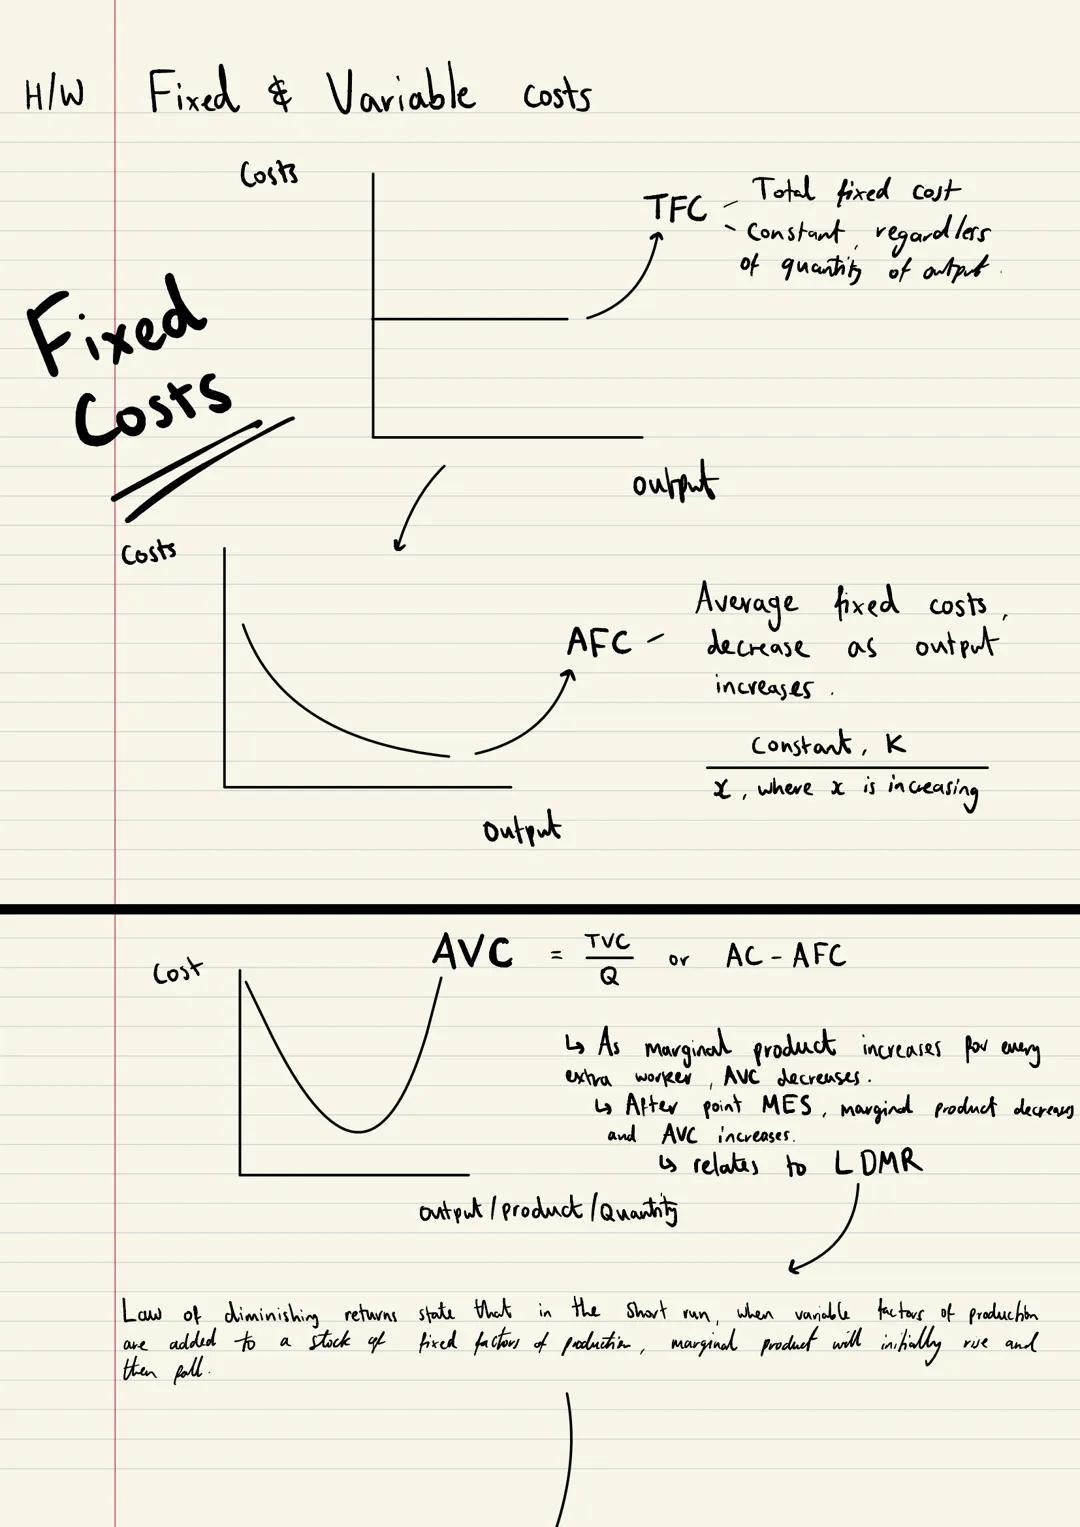 H/W Fixed & Variable costs
Costs
TFC - Total fixed cost
- Constant, regardless
of quantity of output.
Fixed
Costs
output
Costs
Average fixed costs,
AFC - decrease as output
increases.
Constant, K
x, where x is increasing
Output
Cost
AVC = TVC
Q
or AC - AFC
↳ As marginal product increases for every
extra worker, AVC decreases.
↳ After point MES, marginal product decreases
and AVC increases.
↳ relates to LDMR
output/product/Quantity
Law of diminishing returns state that in the short run, when variable factors of production
are added to a stock of fixed factors of production, marginal product will initially rise and
then fall.